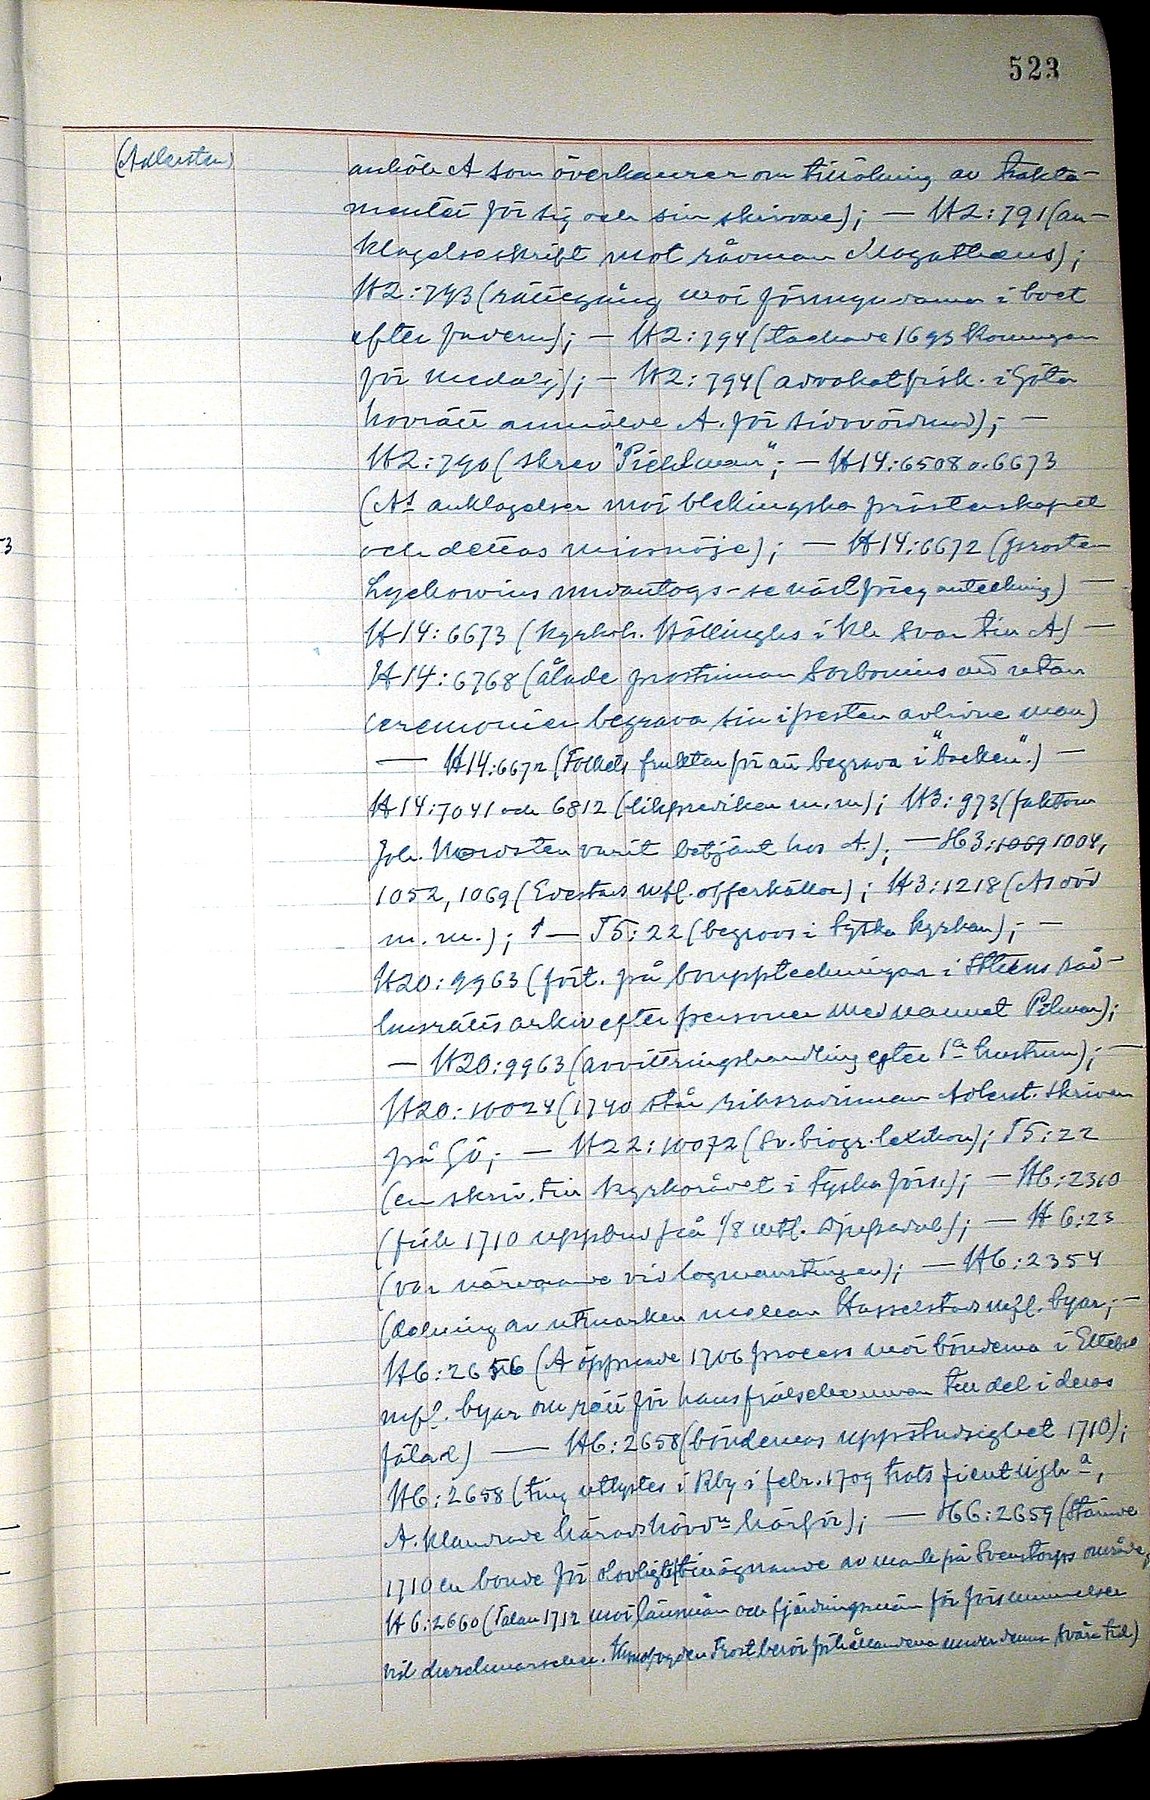 523
(Adlersten)
anhöll A som överkamrer om tillökning av trakta-
mentet för sig och sin skrivare); — H2:791 (an-
klagelseskrift mot råvman Magathæus);
H2:793 (rättegång mot förmyndarna i boet
efter fadern); — H2:794 (tackade 1693 Konungen
för medalj); — H2:794 (advokatfisk. i Göta
hovrätt anmälde A. för sidovördnad); —
H2:790 (skrev "Pihlman"; — H14:6508 o. 6673
(As anklagelser mot blekingska prästerskapet
och dettas missnöje); — H14:6672 (prosten
Lychovius undantogs - se näst föreg anteckning) —
H14:6673 (kyrkoh. Höllinghs i Kh svar till A) —
H14:6768 (ålade prostinnan Sorbonius att utan
ceremonier begrava sin i pesten avlidne man)
— H14:6672 (Folkets fruktan för att begrava i "backen".) —
H14:7041 och 6812 (likpredikan m.m); H3:973 (faktorn
Joh. Nordsten varit betjänt hos A.); — H3:1069 1004,
1052, 1069 (Evestads m fl. offerkällor); H3:1218 (As död
m.m.); — T5:22 (begravs i tyska kyrkan); —
H20:9963 (fört. på bouppteckningar i Sthlms råd-
husrätts arkiv efter personer med namnet Pihlman);
— H20:9963 (avvittringshandling efter 1a hustrun); —
H20:10024 (1740 står riksrådinnan Adlerst. skriven
på Gö; — H22:10072 (Sv. biogr. lexikon); T5:22
(en skriv. till kyrkorådet i tyska förs.); — H6:2310
(fick 1710 uppbud på 1/8 mtl. Djupadal); — H6:23
(var närvarande vid lagmanstingen); — H6:2354
(delning av utmarken mellan Hasselstad m fl. byar; —
H6:2656 (A öppnade 1706 process mot bönderna i Ettebro
m fl. byar om rätt för hans frälsehemman till del i deras
fälad) — H6:2658 (böndernas uppstudsighet 1710);
H6:2658 (ting utlystes i Rby i febr. 1709 trots fientligh a,
A. klandrade häradshövdn härför); — H6:2659 (Stämde
1710 en bonde för olovligt tillägnande av mark på Svenstorps område;
H6:2660 (Talan 1712 mot länsmän och fjärdingsmän för försummelser
vid durchmarscher. Kronofogden Trost berör förhållandena under denna svåra tid)